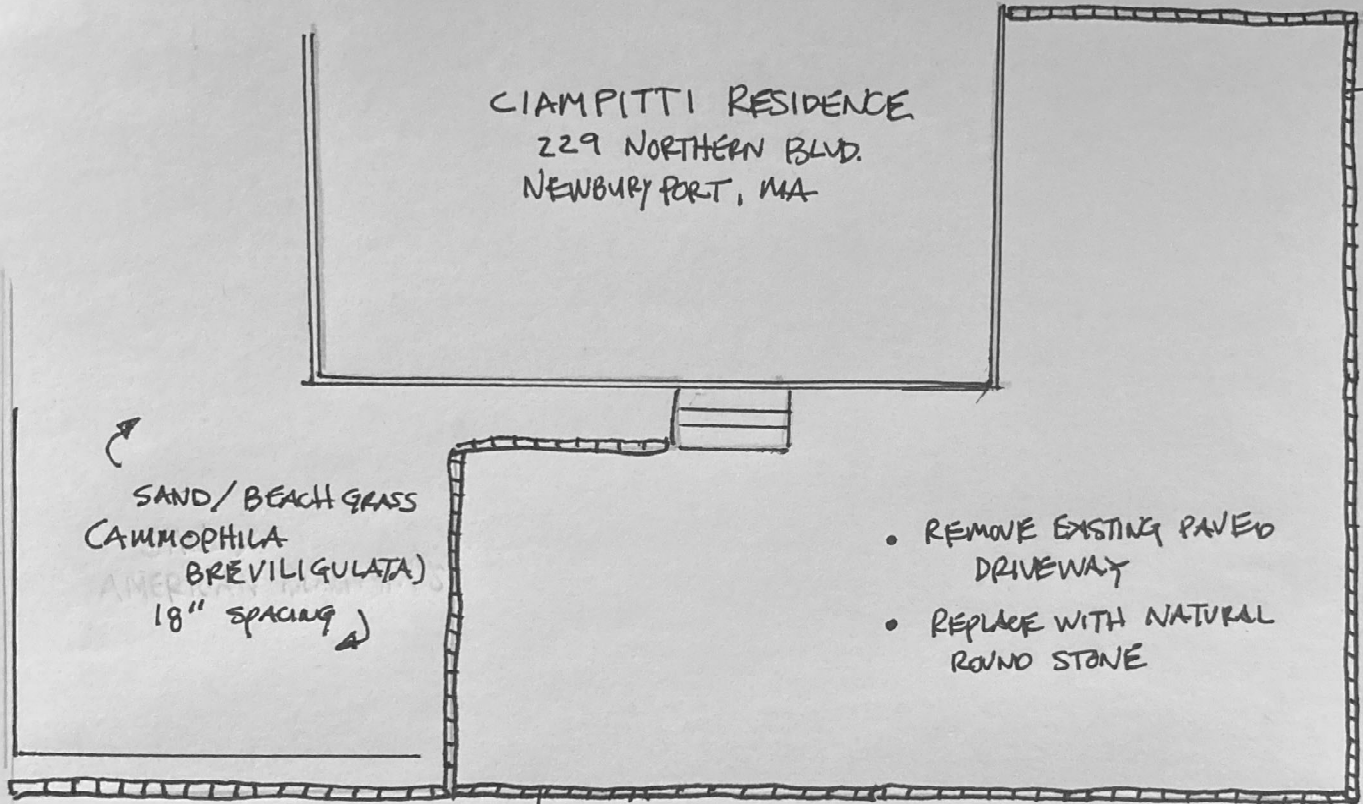 CIAMPITTI RESIDENCE
229 NORTHERN BLVD.
NEWBURYPORT, MA
SAND/BEACH GRASS
(AMMOPHILA
BREVILIGULATA)
18" SPACING
• REMOVE EXISTING PAVED
DRIVEWAY
• REPLACE WITH NATURAL
ROUND STONE